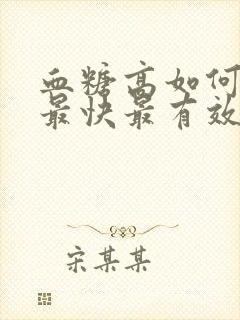 血糖高如何
最快最有效
宋某某